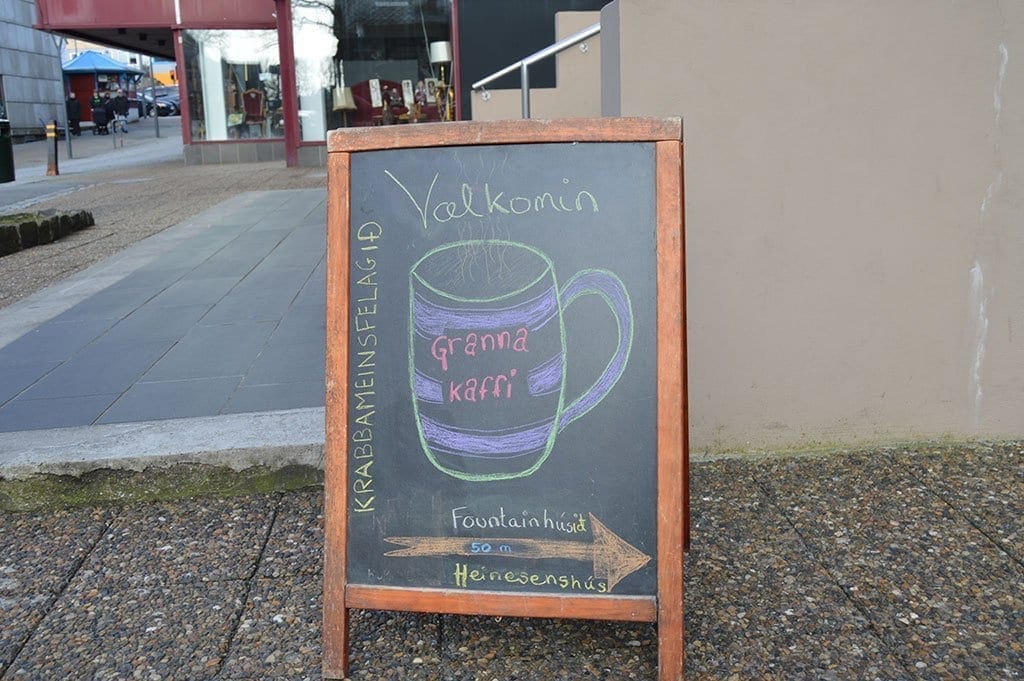 Vælkomin
KRABBAMEINSFELAGIÐ
Granna
kaffi
Fountainhúsið
50 m
Heinesenshús